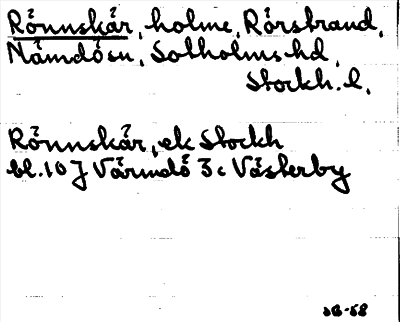 Rönnskär, holme, Rörstrand,
Nämdö sn, Sotholms hd,
Stockh. l.
Rönnskär, ek Stockh
bl. 10 J Värmdö 3c Västerby
-58